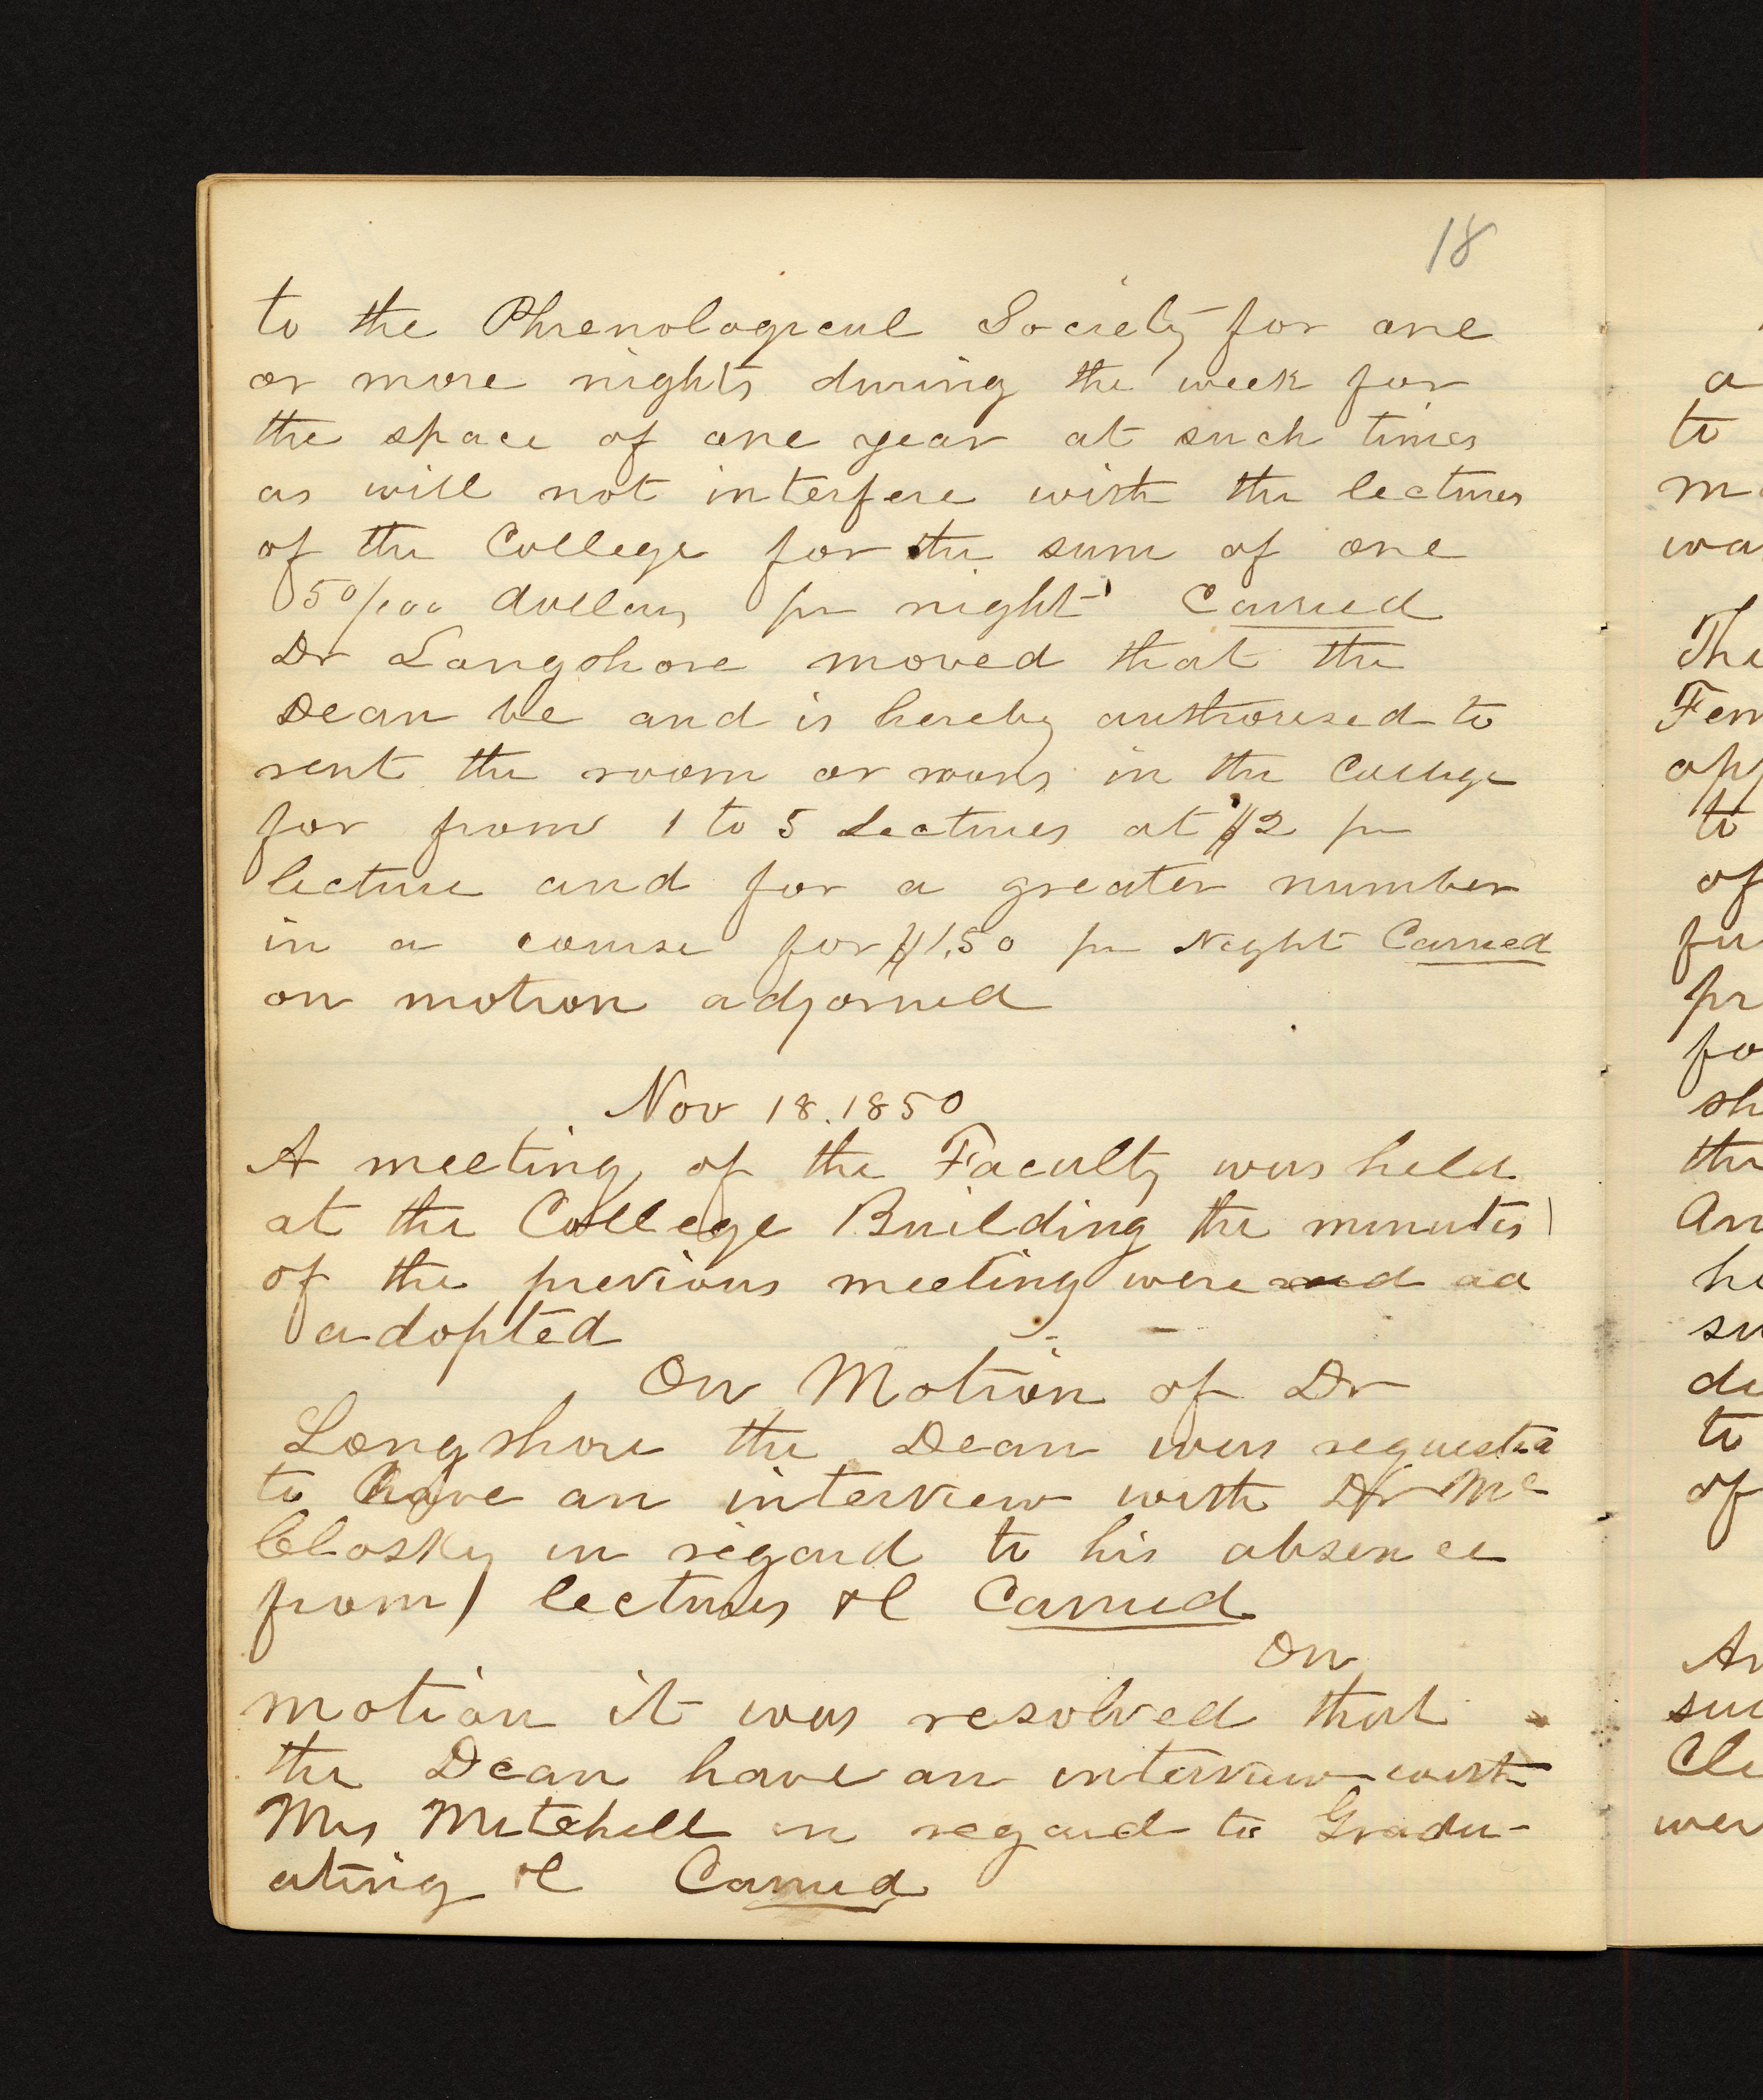 18
to the Phrenological Society for one
or more nights during the week for
the space of one year at such times
as will not interfere with the lectures
of the College for the sum of one
50/100 dollars pr night" Carried
Dr Longshore moved that the
Dean be and is hereby authorised to
rent the room or rooms in the College
for from 1 to 5 Lectures at $2 pr
lecture and for a greater number
in a course for $1.50 pr Night Carried
on motion adjorned
Nov 18. 1850
A meeting of the Faculty was held
at the College Building the minutes
of the previous meeting were
adopted
On Motion of Dr
Longshore the Dean was requested
to have an interview with Dr Mc
Closky in regard to his absence
from lectures &c Carried
On
motion it was resolved that
the Dean have an interview with
Mrs Mitchell in regard to Gradu-
ating &c Carried
a
to
wa
The
Fem
to
of
pr
fo
sh
the
An
he
su
de
to
of